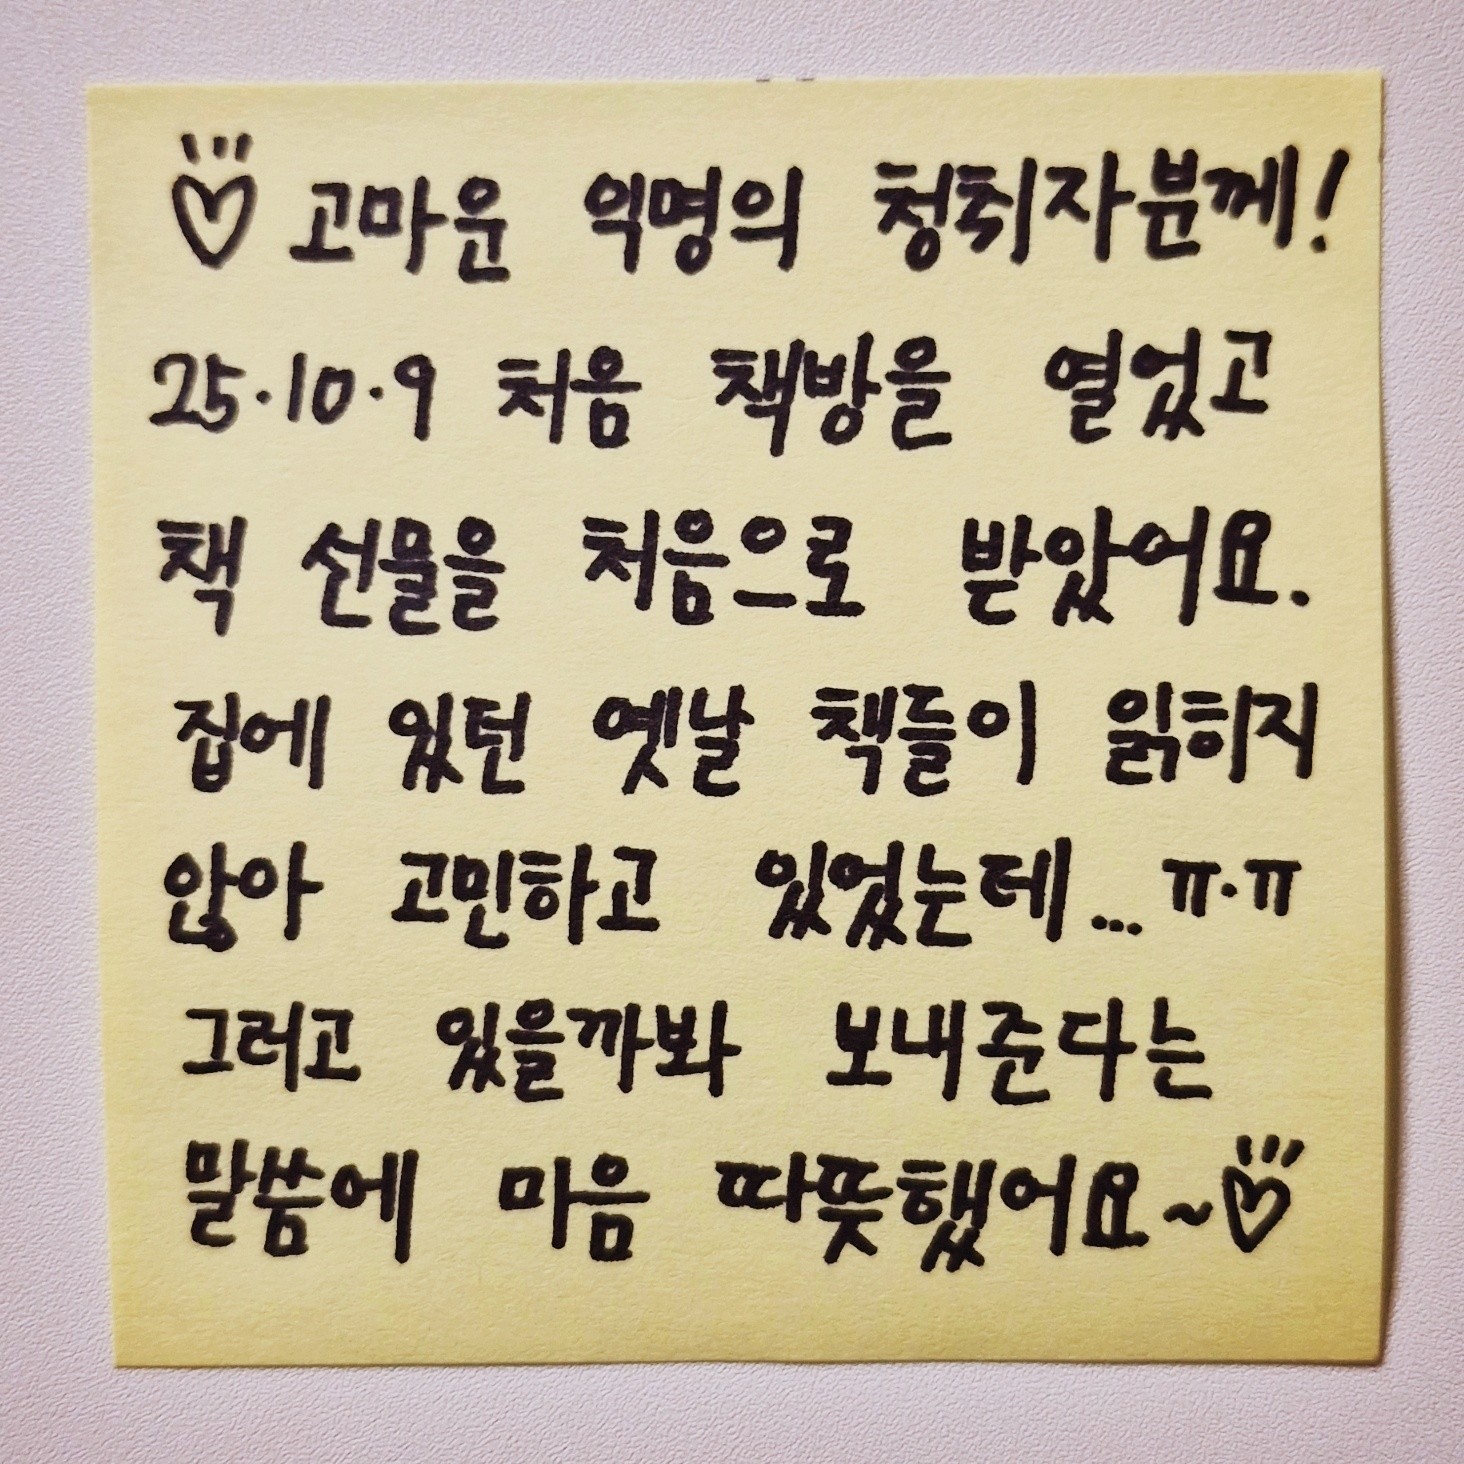 ♡ 고마운 익명의 청취자분께!
25.10.9 처음 책방을 열었고
책 선물을 처음으로 받았어요.
집에 있던 옛날 책들이 읽히지
않아 고민하고 있었는데... ㅠ.ㅠ
그러고 있을까봐 보내준다는
말씀에 마음 따뜻했어요~♡